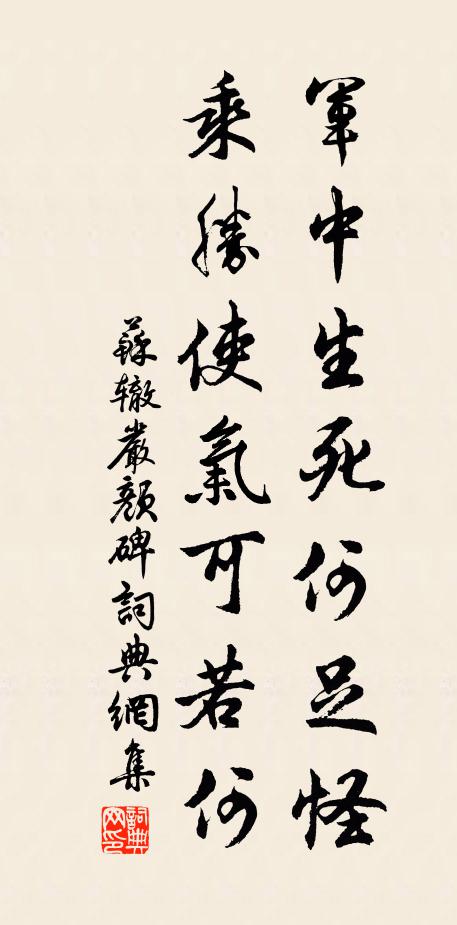 軍中生死何足怪
乘勝使氣可若何
蘇轍嚴顏碑詞典網集
詞典網印